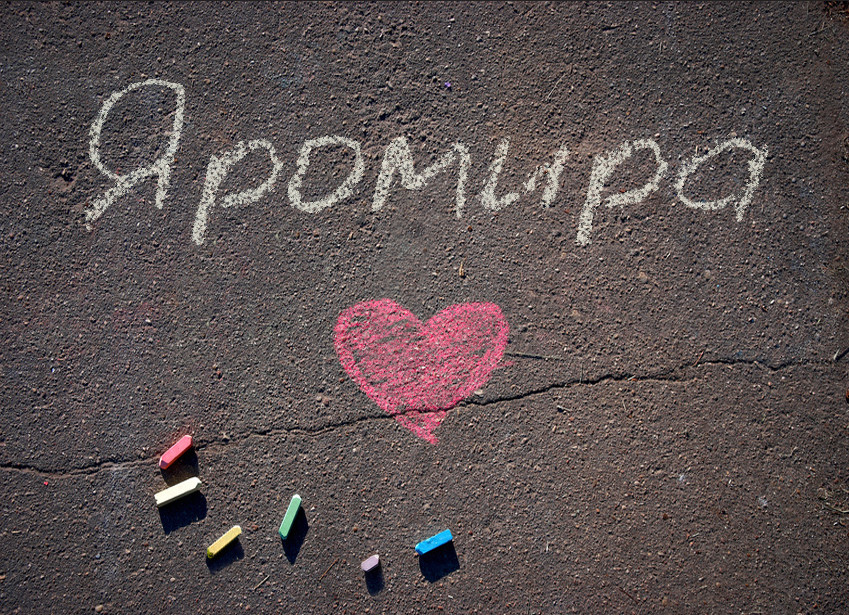 Яромира